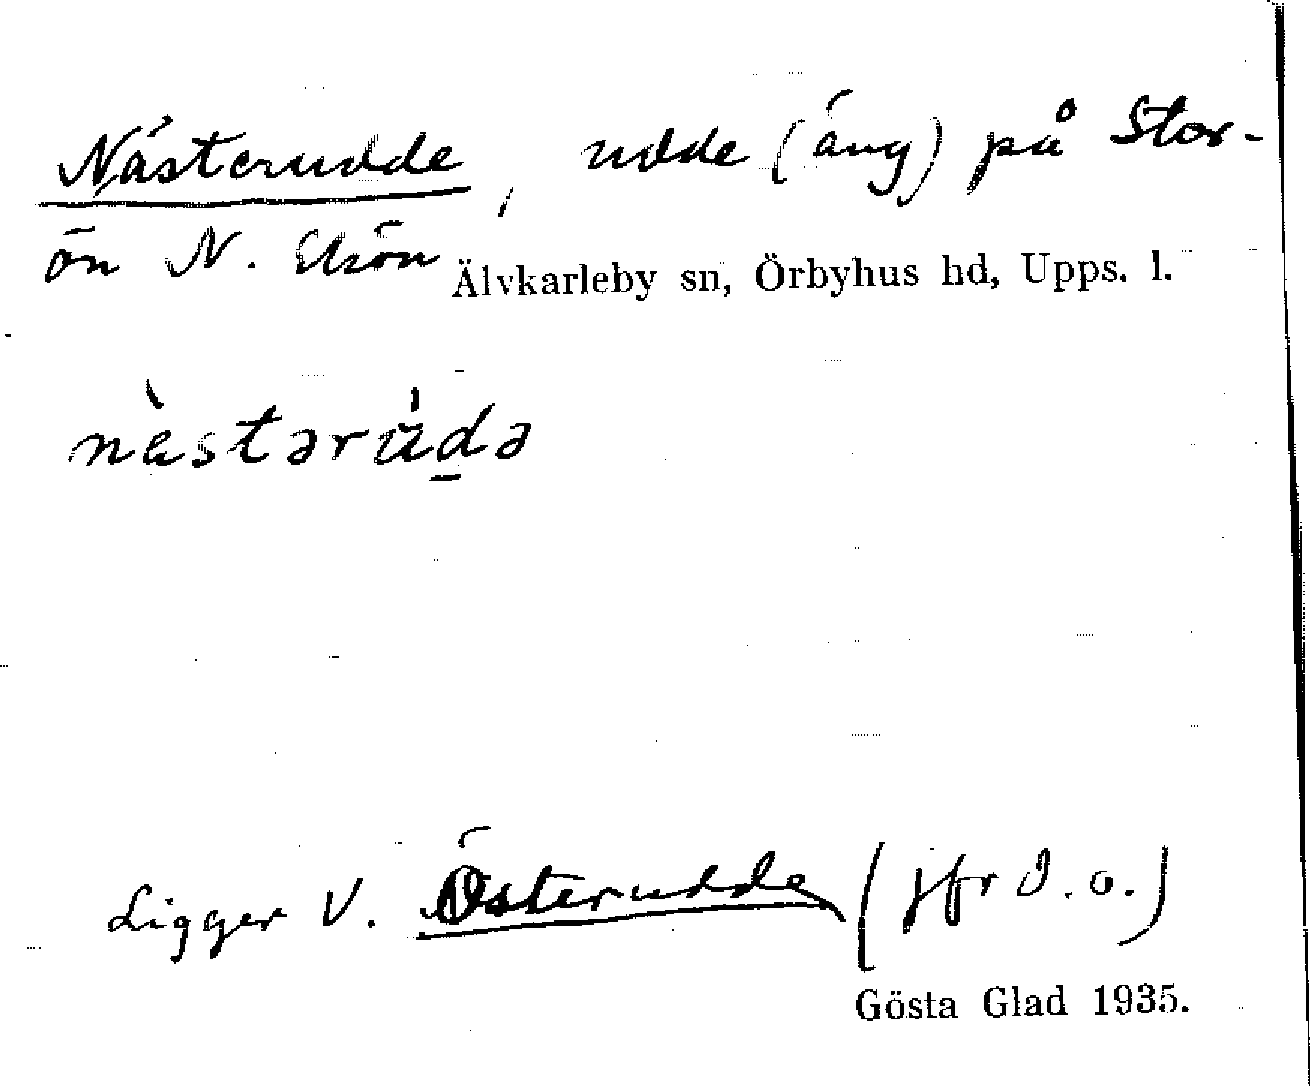 Nästerudde, udde (äng) på Stor-
ön N. Älvkarleby sn, Örbyhus hd, Upps. l.
nästərùdə
Ligger V. Österudde (jfr d. o.)
Gösta Glad 1935.